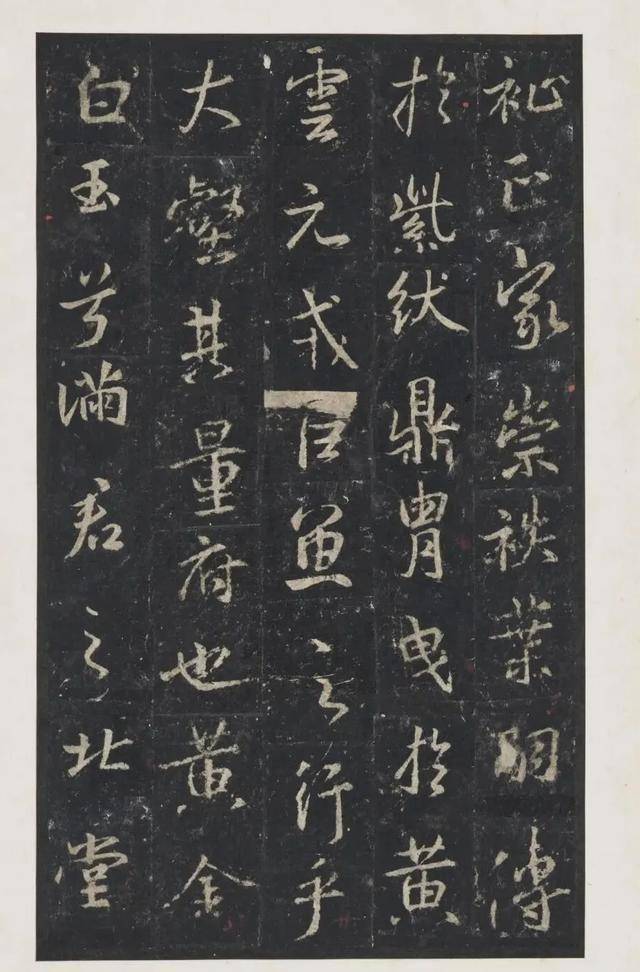 祉正家崇袟葉嗣傳
於紫紱鼎胄曳於黃
雲元戎巨魚言行乎
大壑其量府也黃金
白玉兮滿君之北堂